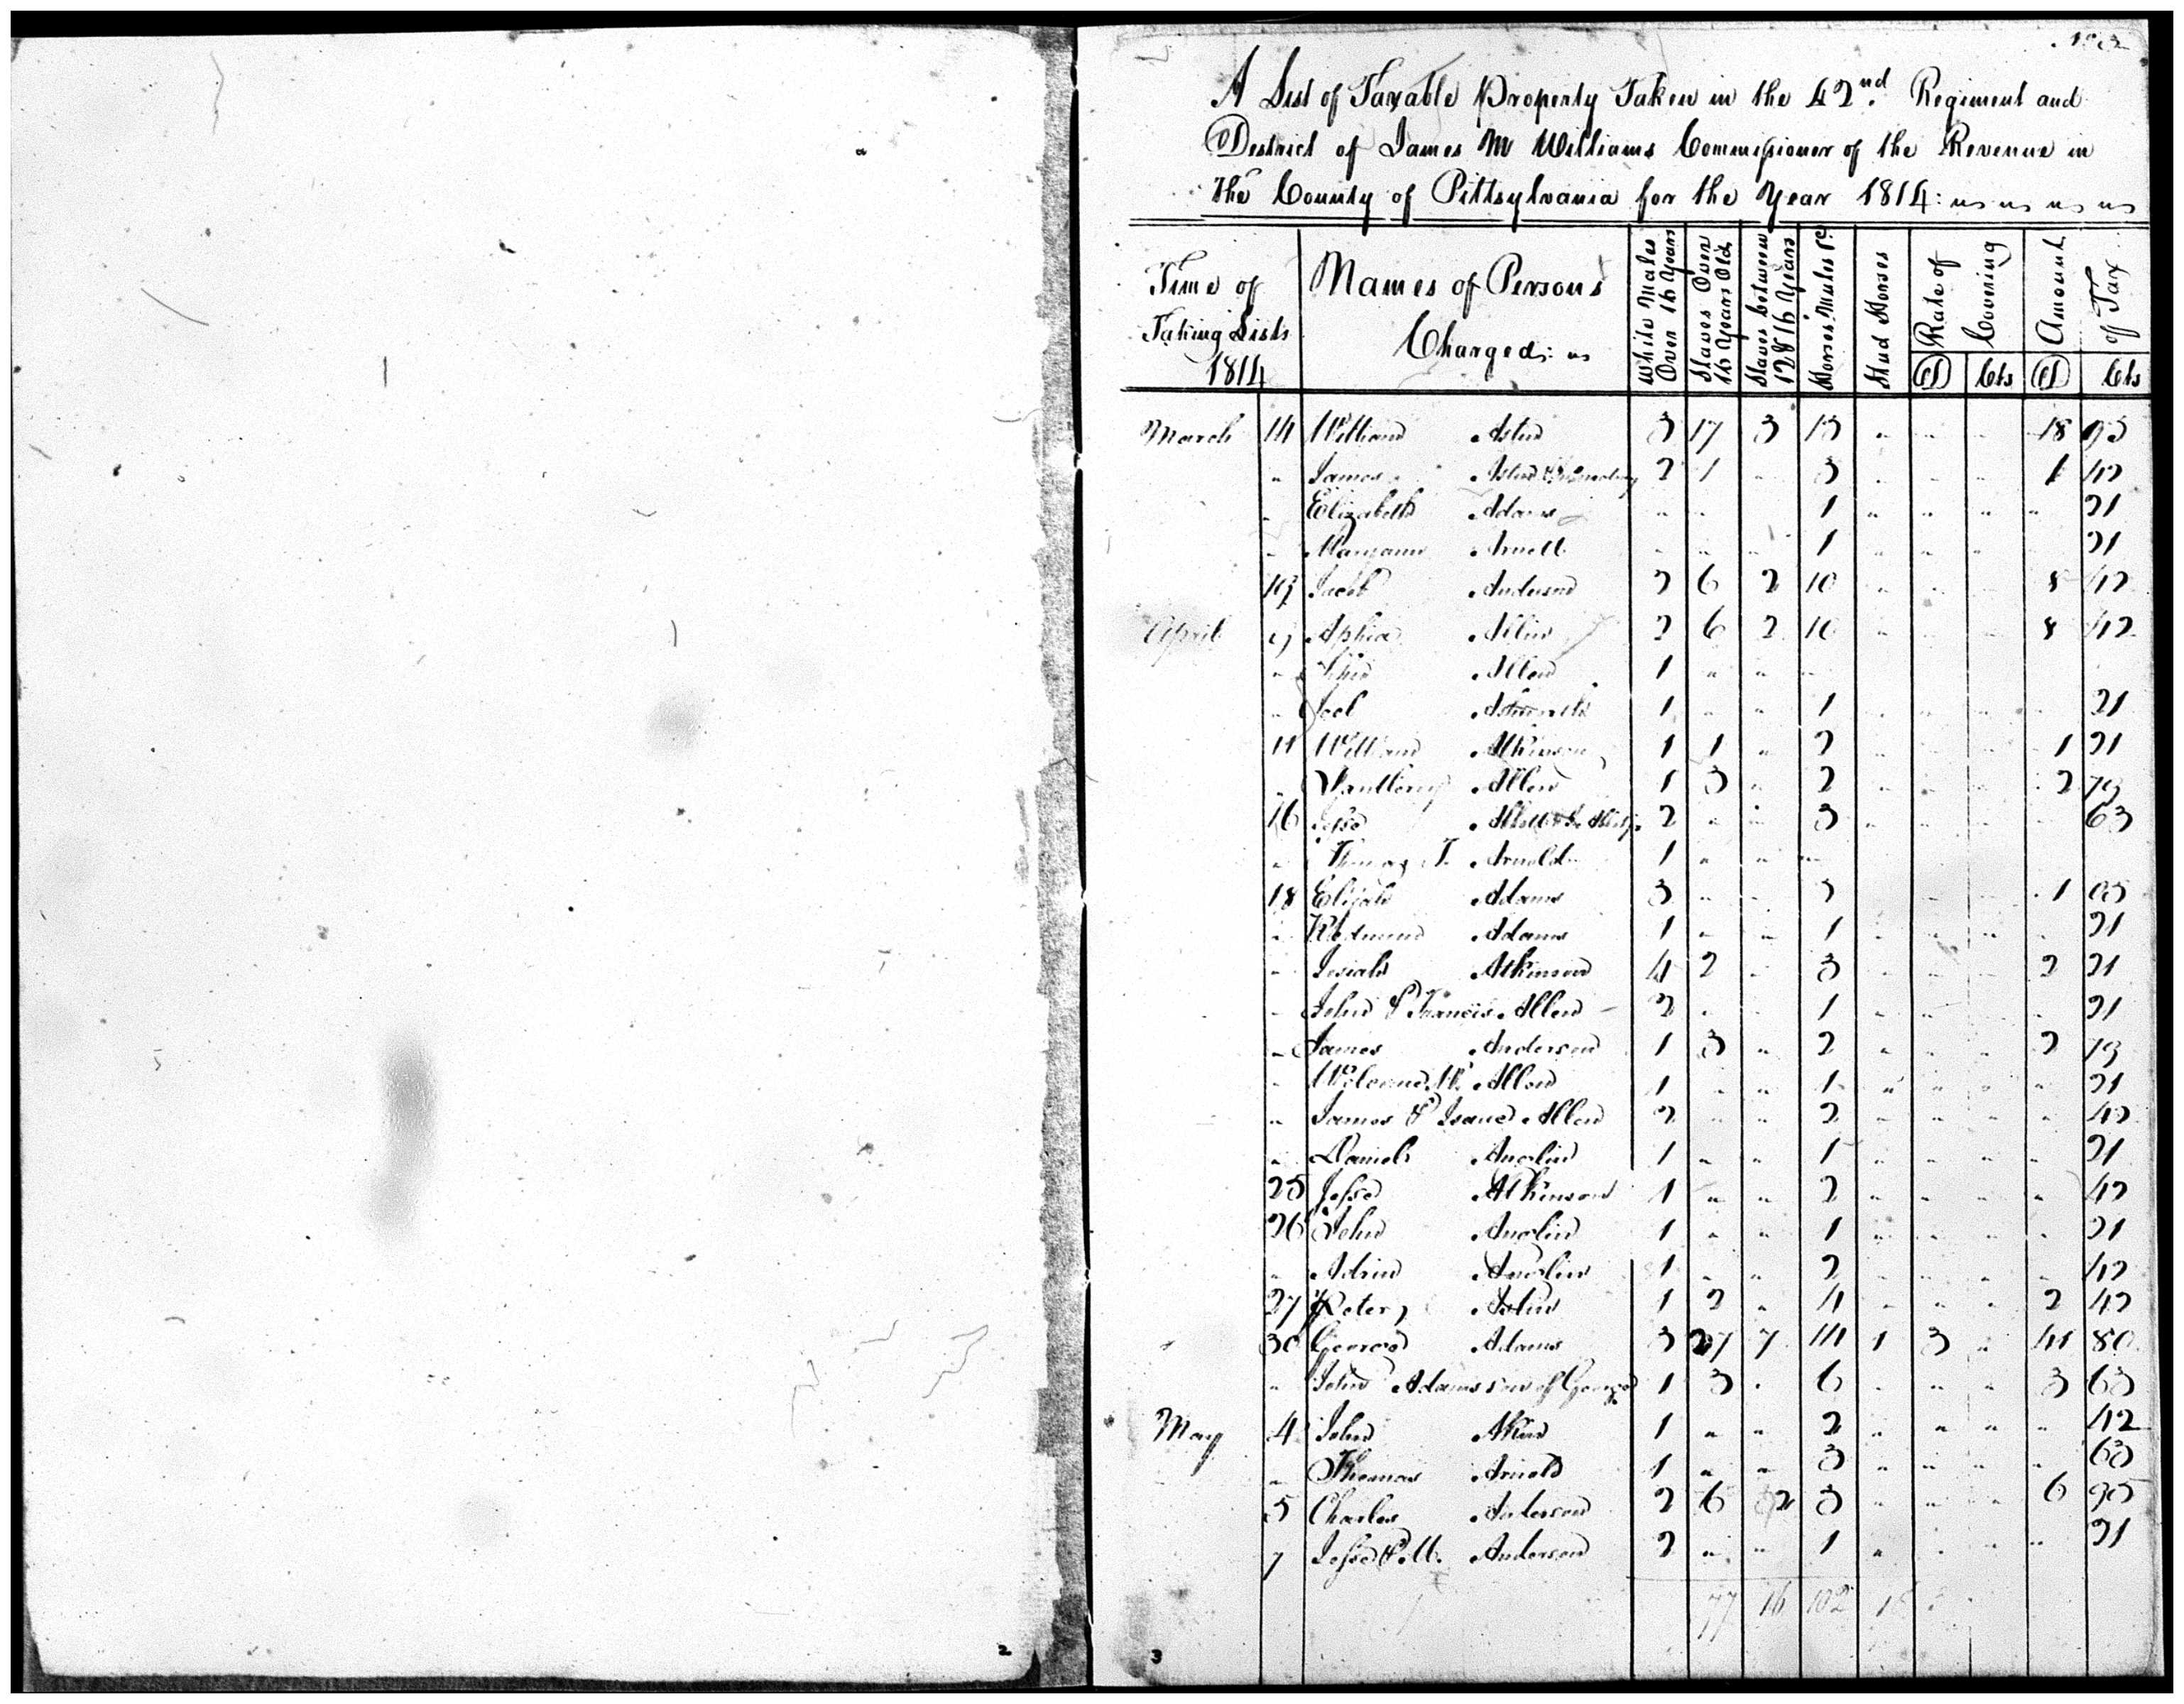 A List of Taxable Property Taken in the 42nd Regiment and
District of James M Williams Commissioner of the Revenue in
the County of Pittsylvania for the Year 1814:
Time of Taking Lists 1814
Names of Persons Charged:
White Males Over 16 Years
Slaves Over 16 Years Old
Slaves between 12 & 16 Years
Horses Mules &c
Stud Horses
Rate of Covering
Amount of Tax
D Cts D Cts
March 14 William 3 17 3 13 " " " 18 95
" James 2 1 " 3 " " " 1 42
" Elizabeth Adams " " 1 " " " " 21
" Arnett " " " 1 " " " 21
19 Jacob Anderson 2 6 2 10 " " " 8 42
April 9 2 6 2 10 " " " 8 42
" Allen 1 " " "
" Joel 1 " " 1 " " " " 21
11 William Atkinson 1 1 " 2 " " " 1 21
" Allen 1 3 " 2 " " " 2 79
16 Jesse 2 " " 3 " " " " 63
" Thomas T. Arnold 1 " " "
18 Elijah Adams 3 " " 5 " " " 1 05
" Redmund Adams 1 " " 1 " " " " 21
" Josiah Atkinson 4 2 " 3 " " " 2 21
" John & Francis Allen 2 " " 1 " " " " 21
" James Anderson 1 3 " 2 " " " 2 79
" Allen 1 " " 1 " " " " 21
" James & Isaac Allen 2 " " 2 " " " " 42
" Daniel Anglin 1 " " 1 " " " " 21
25 Jesse Atkinson 1 " " 2 " " " " 42
26 John Anglin 1 " " 1 " " " " 21
" Adrin Anglin 1 " " 2 " " " " 42
27 Peter 1 2 " 4 " " " 2 42
30 George Adams 3 27 7 14 1 3 " 41 80
" John Adams son of George 1 3 " 6 " " " 3 63
May 4 John Akin 1 " " 2 " " " " 42
" Thomas Arnold 1 " " 3 " " " " 63
5 Charles Anderson 2 6 2 3 " " " 6 95
7 Jesse Anderson 2 " " 1 " " " " 21
77 16 102
2
3